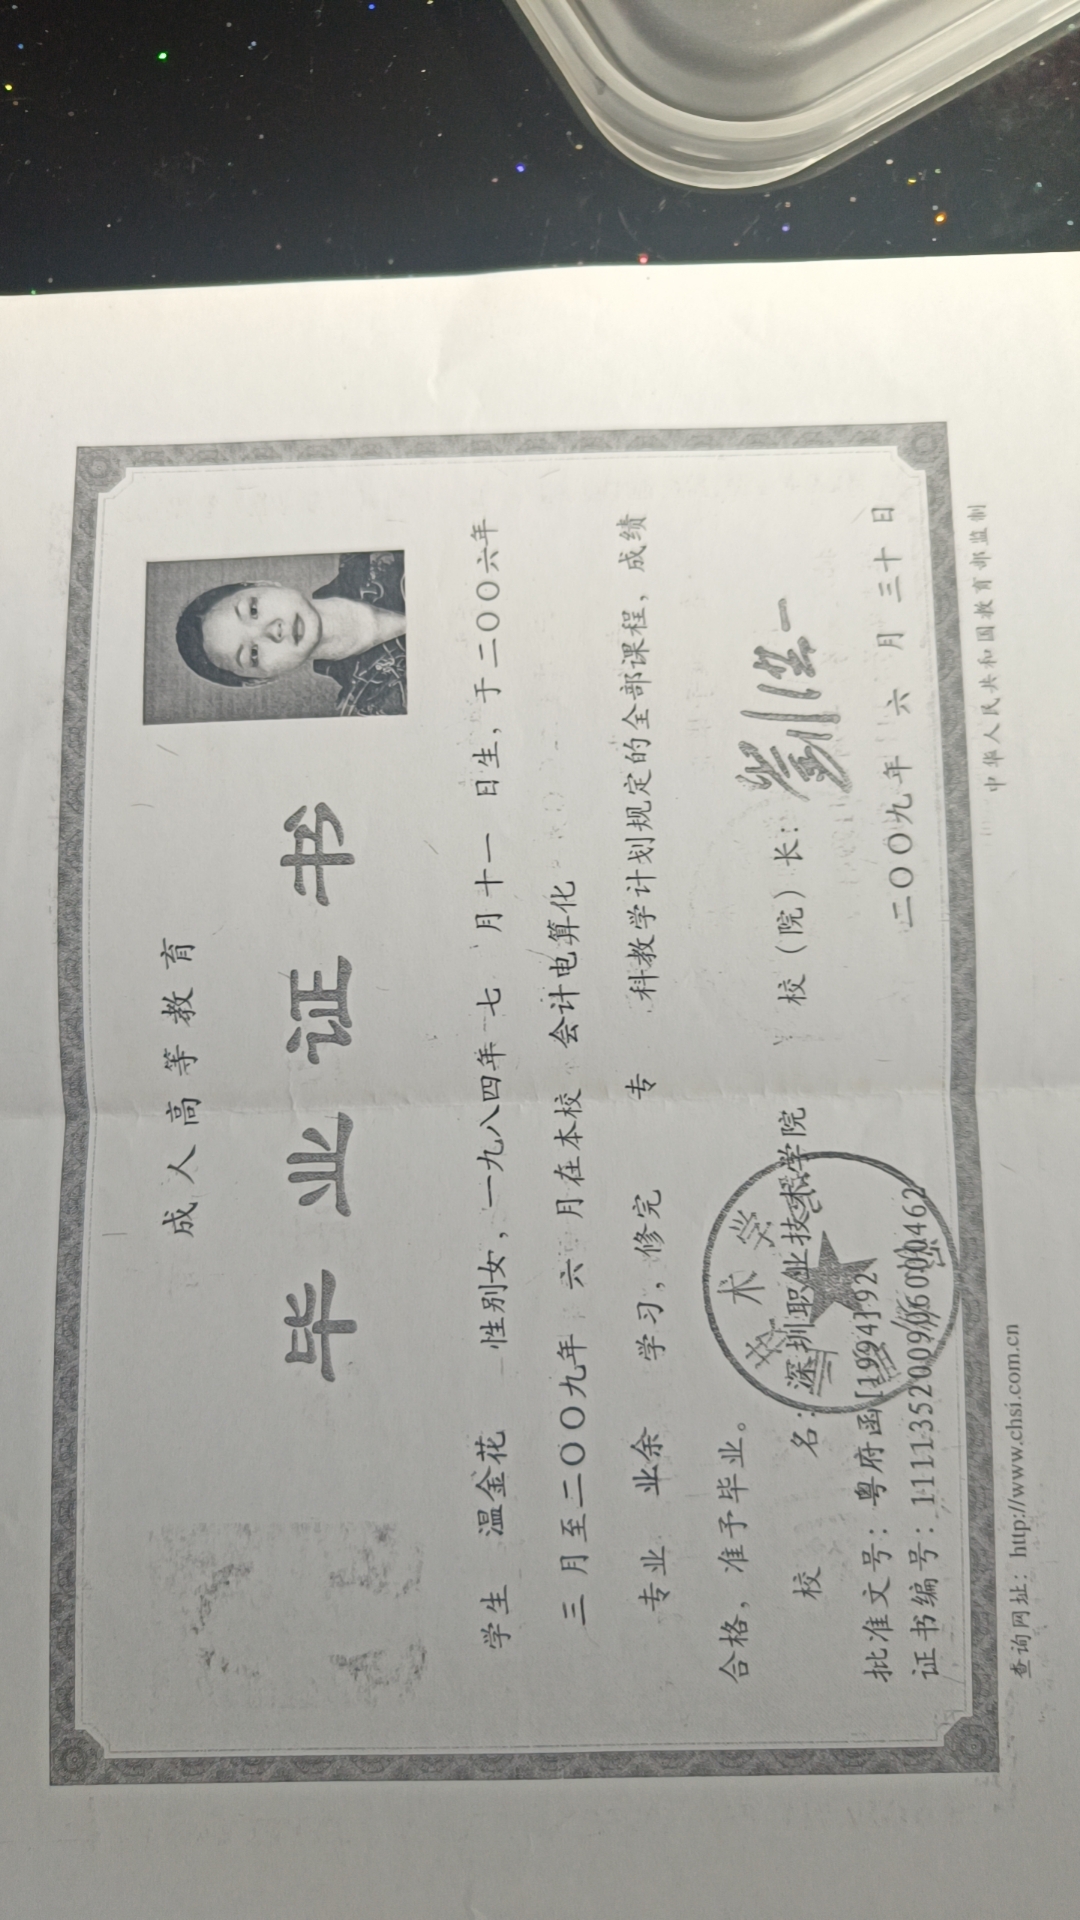 成人高等教育
毕业证书
学生 温金花 性别女，一九八四年七月十一日生，于二〇〇六年
三月至二〇〇九年六月在本校 会计电算化
专业 业余 学习，修完 专 科教学计划规定的全部课程，成绩
合格，准予毕业。
校 名：深圳职业技术学院 校（院）长：
批准文号：粤府函[1994]92
证书编号：111135200906000462
二〇〇九年 六 月 三十 日
查询网址：http://www.chsi.com.cn
中华人民共和国教育部监制